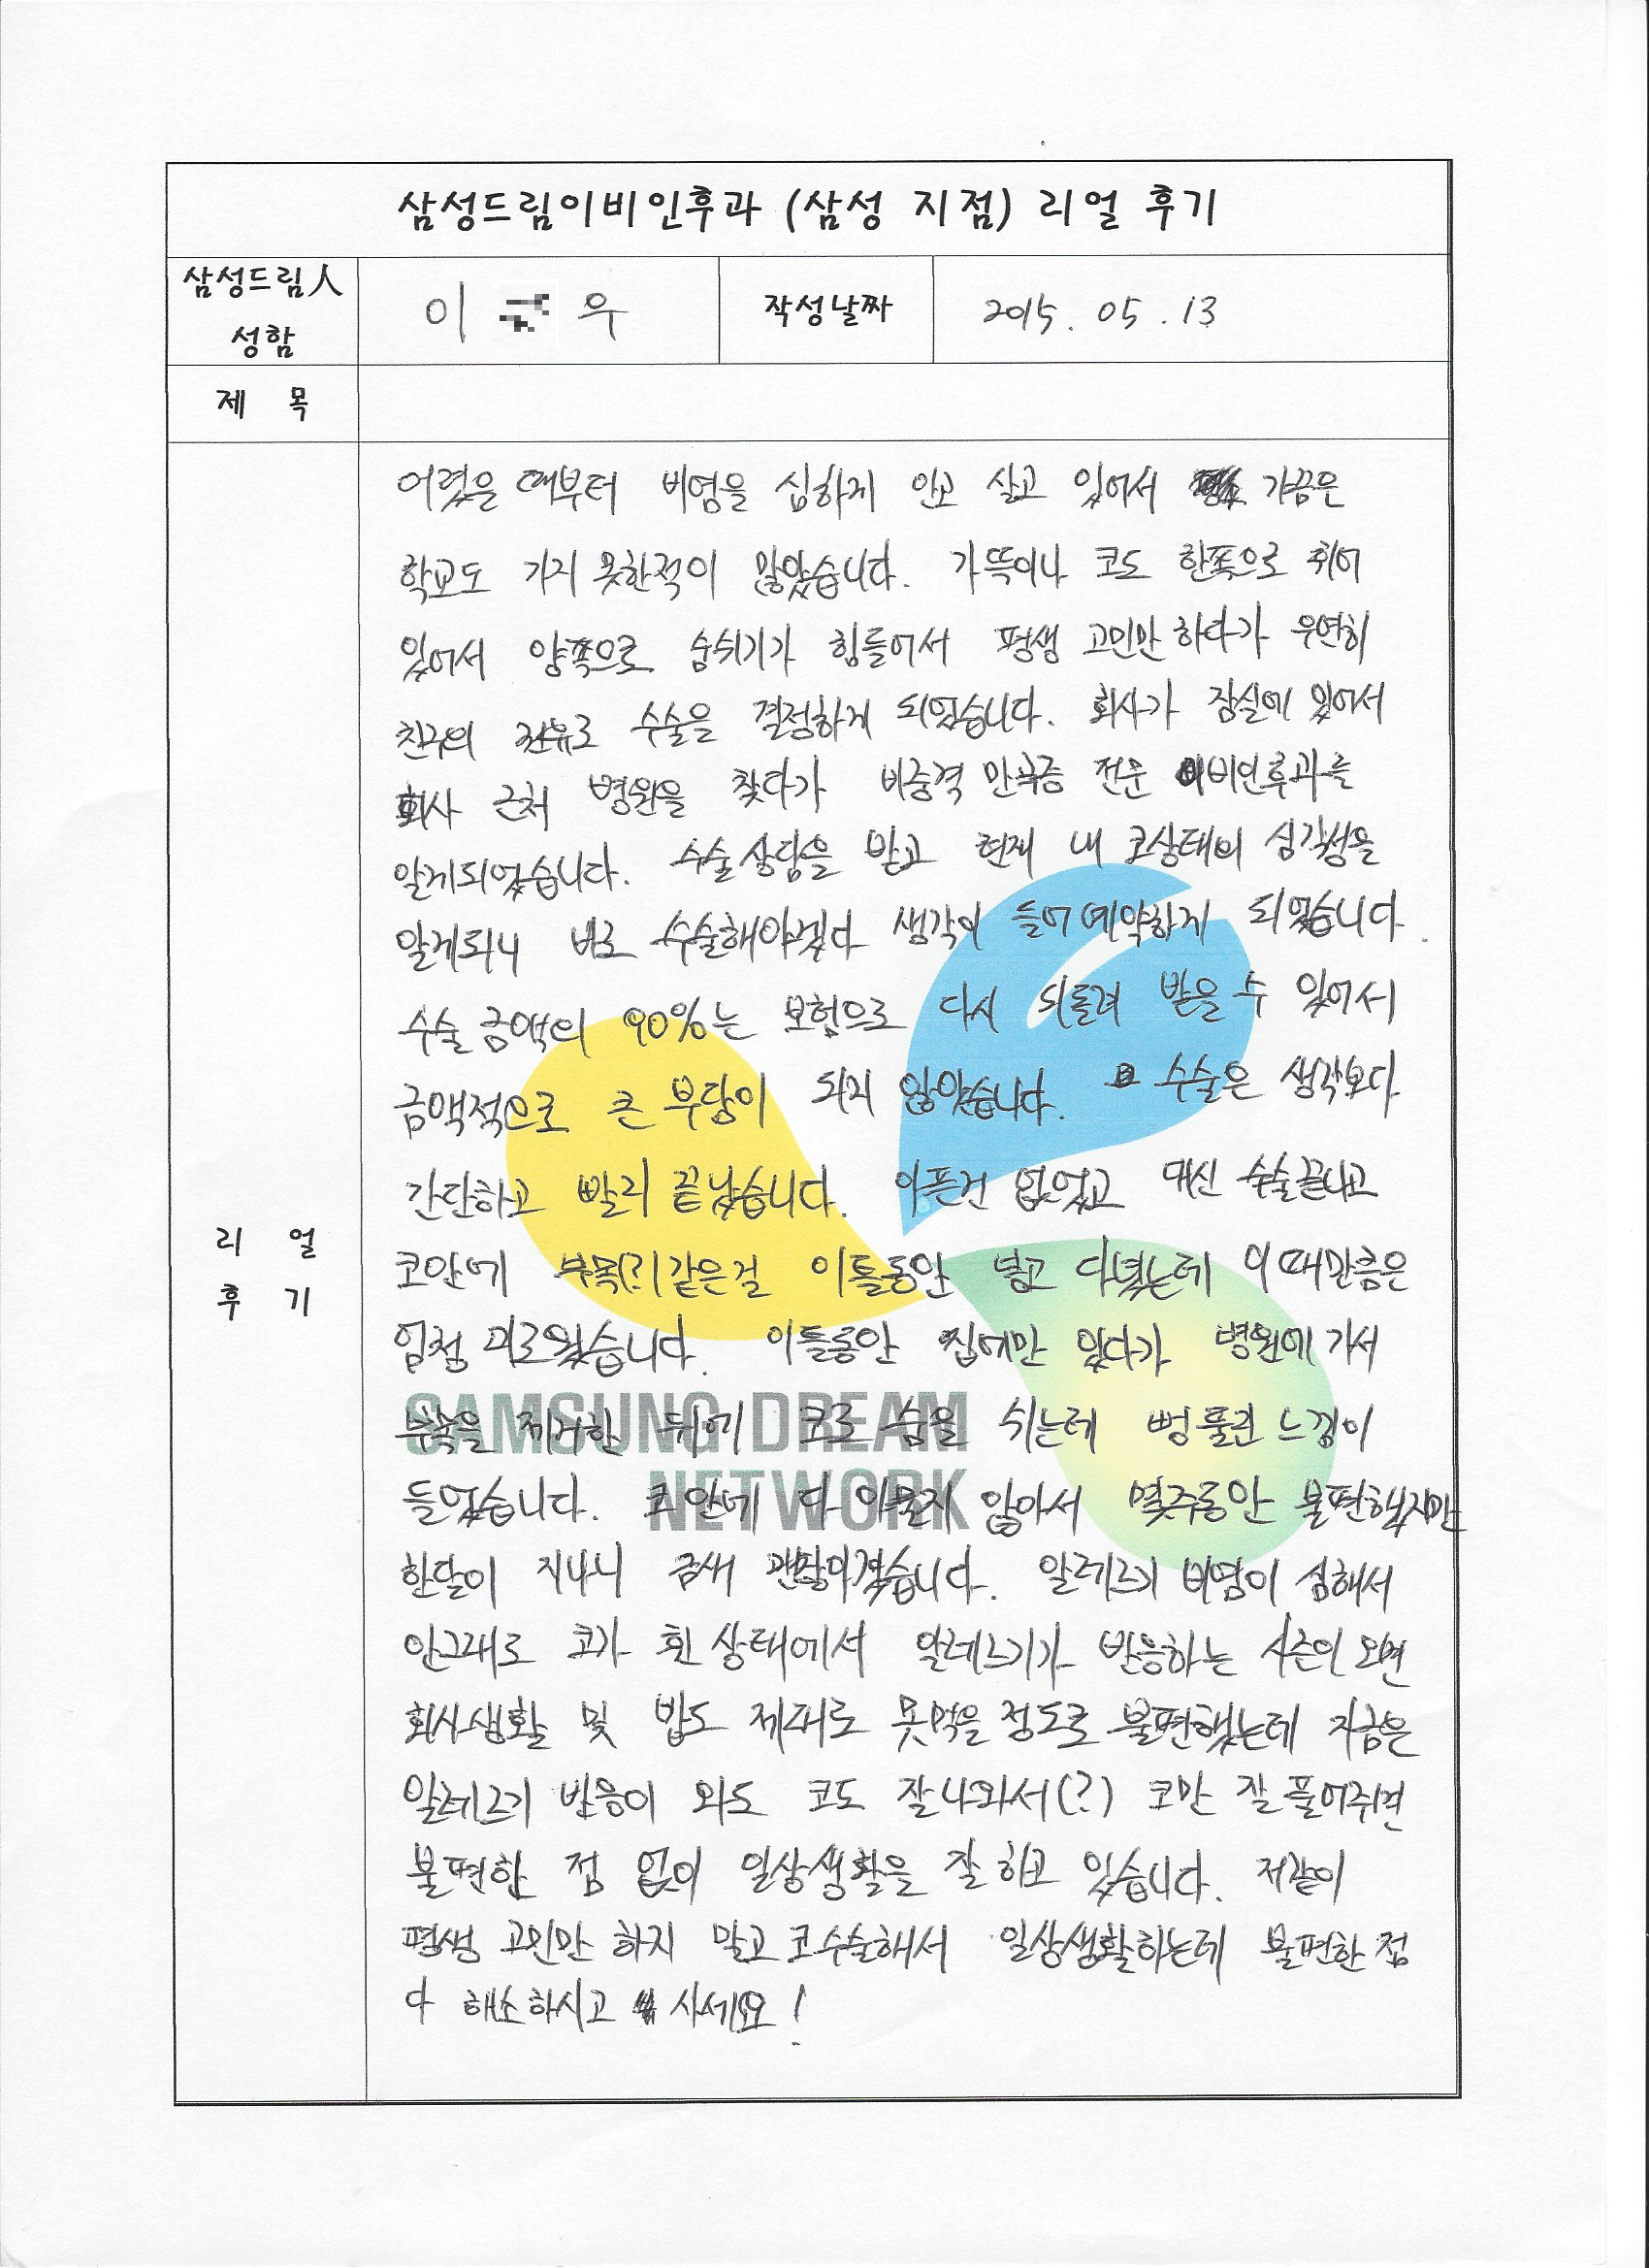 삼성드림이비인후과 (삼성 지점) 리얼 후기
삼성드림人
성함
이 우
작성날짜
2015. 05. 13
제 목
어렸을 때부터 비염을 심하게 안고 살고 있어서 가끔은
학교도 가지 못한적이 많았습니다. 가뜩이나 코도 한쪽으로 휘어
있어서 양쪽으로 숨쉬기가 힘들어서 평생 고민만 하다가 우연히
친구의 권유로 수술을 결정하게 되었습니다. 회사가 잠실에 있어서
회사 근처 병원을 찾다가 비중격 만곡증 전문 이비인후과를
알게되었습니다. 수술상담을 받고 현재 내 코상태의 심각성을
알게되니 바로 수술해야겠다 생각이 들어 예약하게 되었습니다.
수술 금액의 90%는 보험으로 다시 되돌려 받을 수 있어서
금액적으로 큰 부담이 되지 않았습니다. 수술은 생각보다
간단하고 빨리 끝났습니다. 아픈건 없었고 대신 수술끝나고
코안에 부목(?)같은걸 이틀동안 넣고 다녔는데 이때만큼은
엄청 괴로웠습니다. 이틀동안 집에만 있다가 병원에 가서
부목을 제거한 뒤에 코로 숨을 쉬는데 뻥 뚫린 느낌이
들었습니다. 코안에 다 아물지 않아서 몇주동안 불편했지만
한달이 지나니 금새 괜찮아졌습니다. 알레르기 비염이 심해서
안그래도 코가 휜 상태에서 알레르기가 반응하는 시즌이 오면
회사생활 및 밥도 제대로 못먹을 정도로 불편했는데 지금은
알레르기 반응이 와도 코도 잘나와서(?) 코만 잘 풀어주면
불편한 점 없이 일상생활을 잘 하고 있습니다. 저같이
평생 고민만 하지 말고 코수술해서 일상생활하는데 불편한 점
다 해소하시고 사세요!
리 얼
후 기
SAMSUNG DREAM
NETWORK